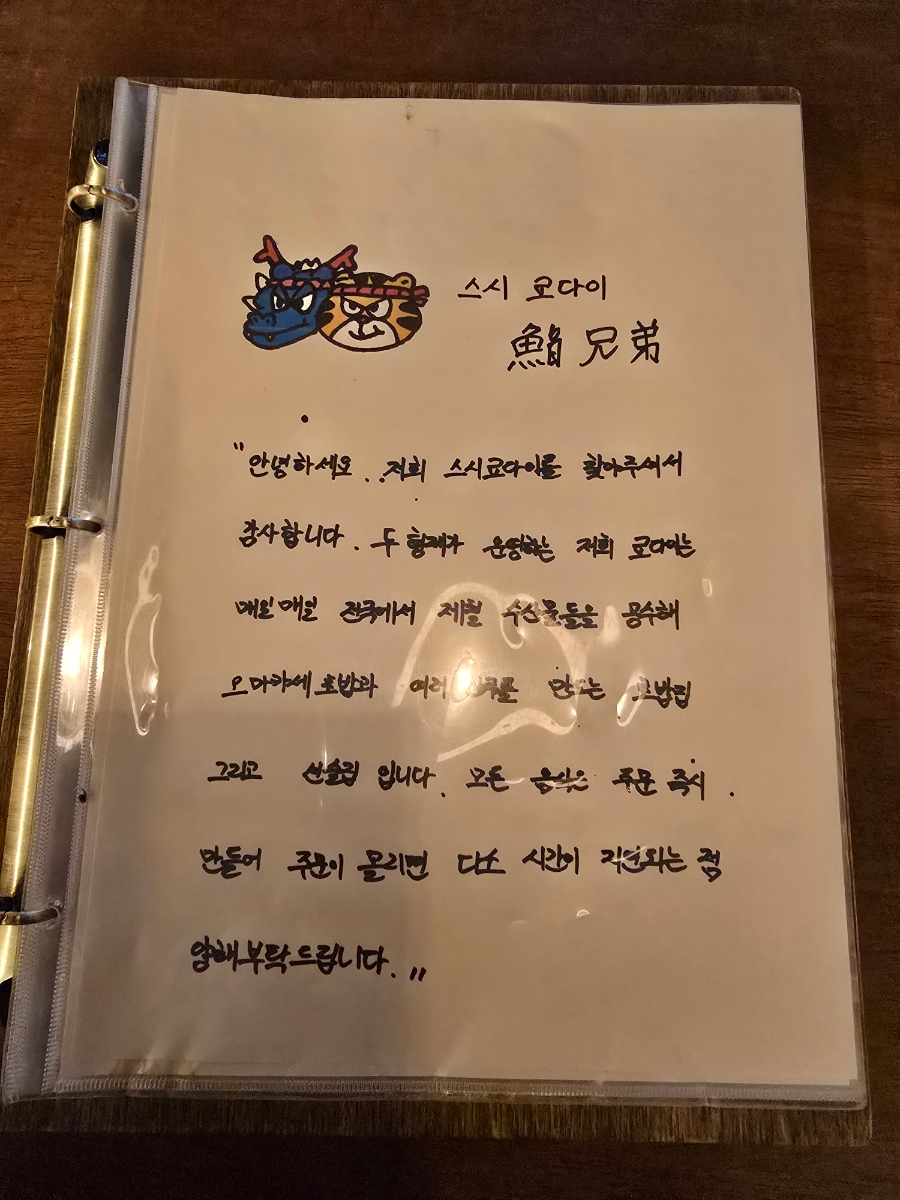 스시 쿄다이
鮨 兄弟
"안녕하세요. 저희 스시쿄다이를 찾아주셔서
감사합니다. 두 형제가 운영하는 저희 쿄다이는
매일매일 전국에서 제철 수산물들을 공수해
오마카세 초밥과 여러 만드는 초밥집
그리고 선술집 입니다. 모든 음식은 주문 즉시
만들어 주문이 몰리면 다소 시간이 지연되는 점
양해부탁드립니다."